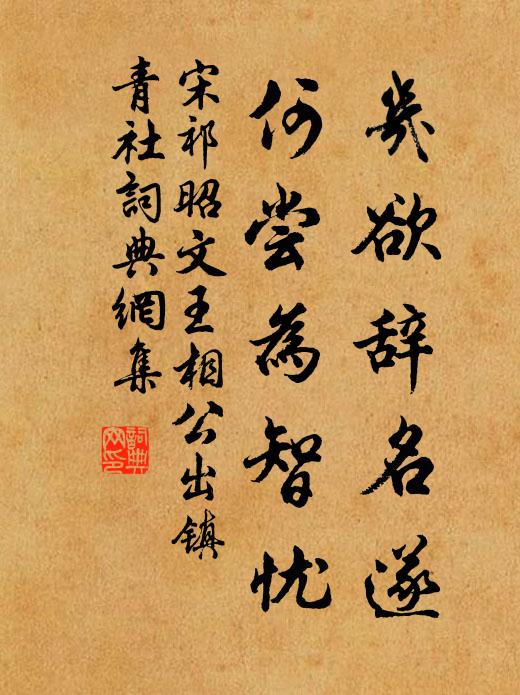 幾欲辞名遂
何嘗為智忧
宋祁昭文王相公出镇
青社詞典網集
詞典网印